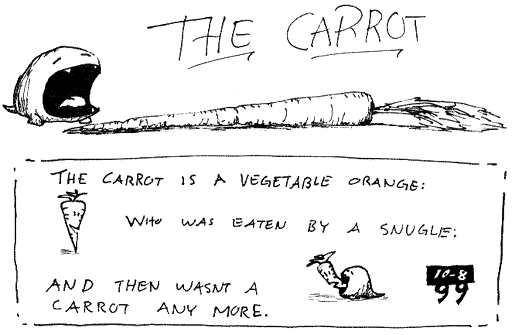 THE CARROT
THE CARROT IS A VEGETABLE ORANGE:
WHO WAS EATEN BY A SNUGLE:
AND THEN WASNT A
CARROT ANY MORE.
10-8
99